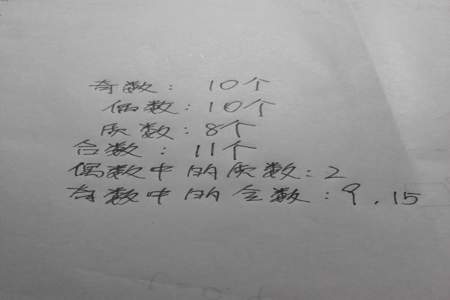 奇数：10个
偶数：10个
质数：8个
合数：11个
偶数中的质数：2
奇数中的合数：9.15